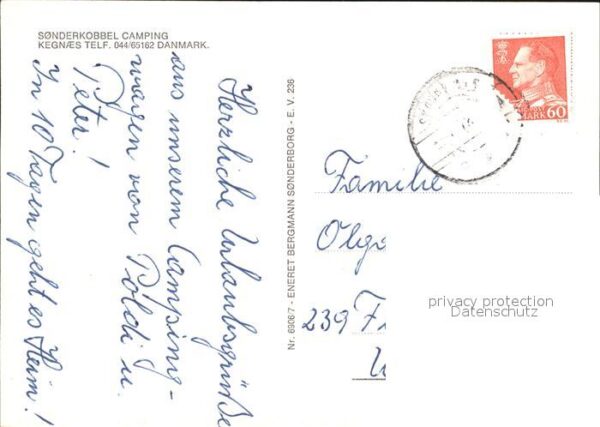 SØNDERKOBBEL CAMPING
KEGNÆS TELF. 044/65162 DANMARK.
Herzliche Urlaubsgrüße
aus unserem Camping-
wagen von Poldi u.
Peter!
In 10 Tagen geht es Heim!
Nr. 6906/7 - ENERET BERGMANN SØNDERBORG - E. V. 236
DANMARK 60
Familie
Olga
239 F
privacy protection
Datenschutz